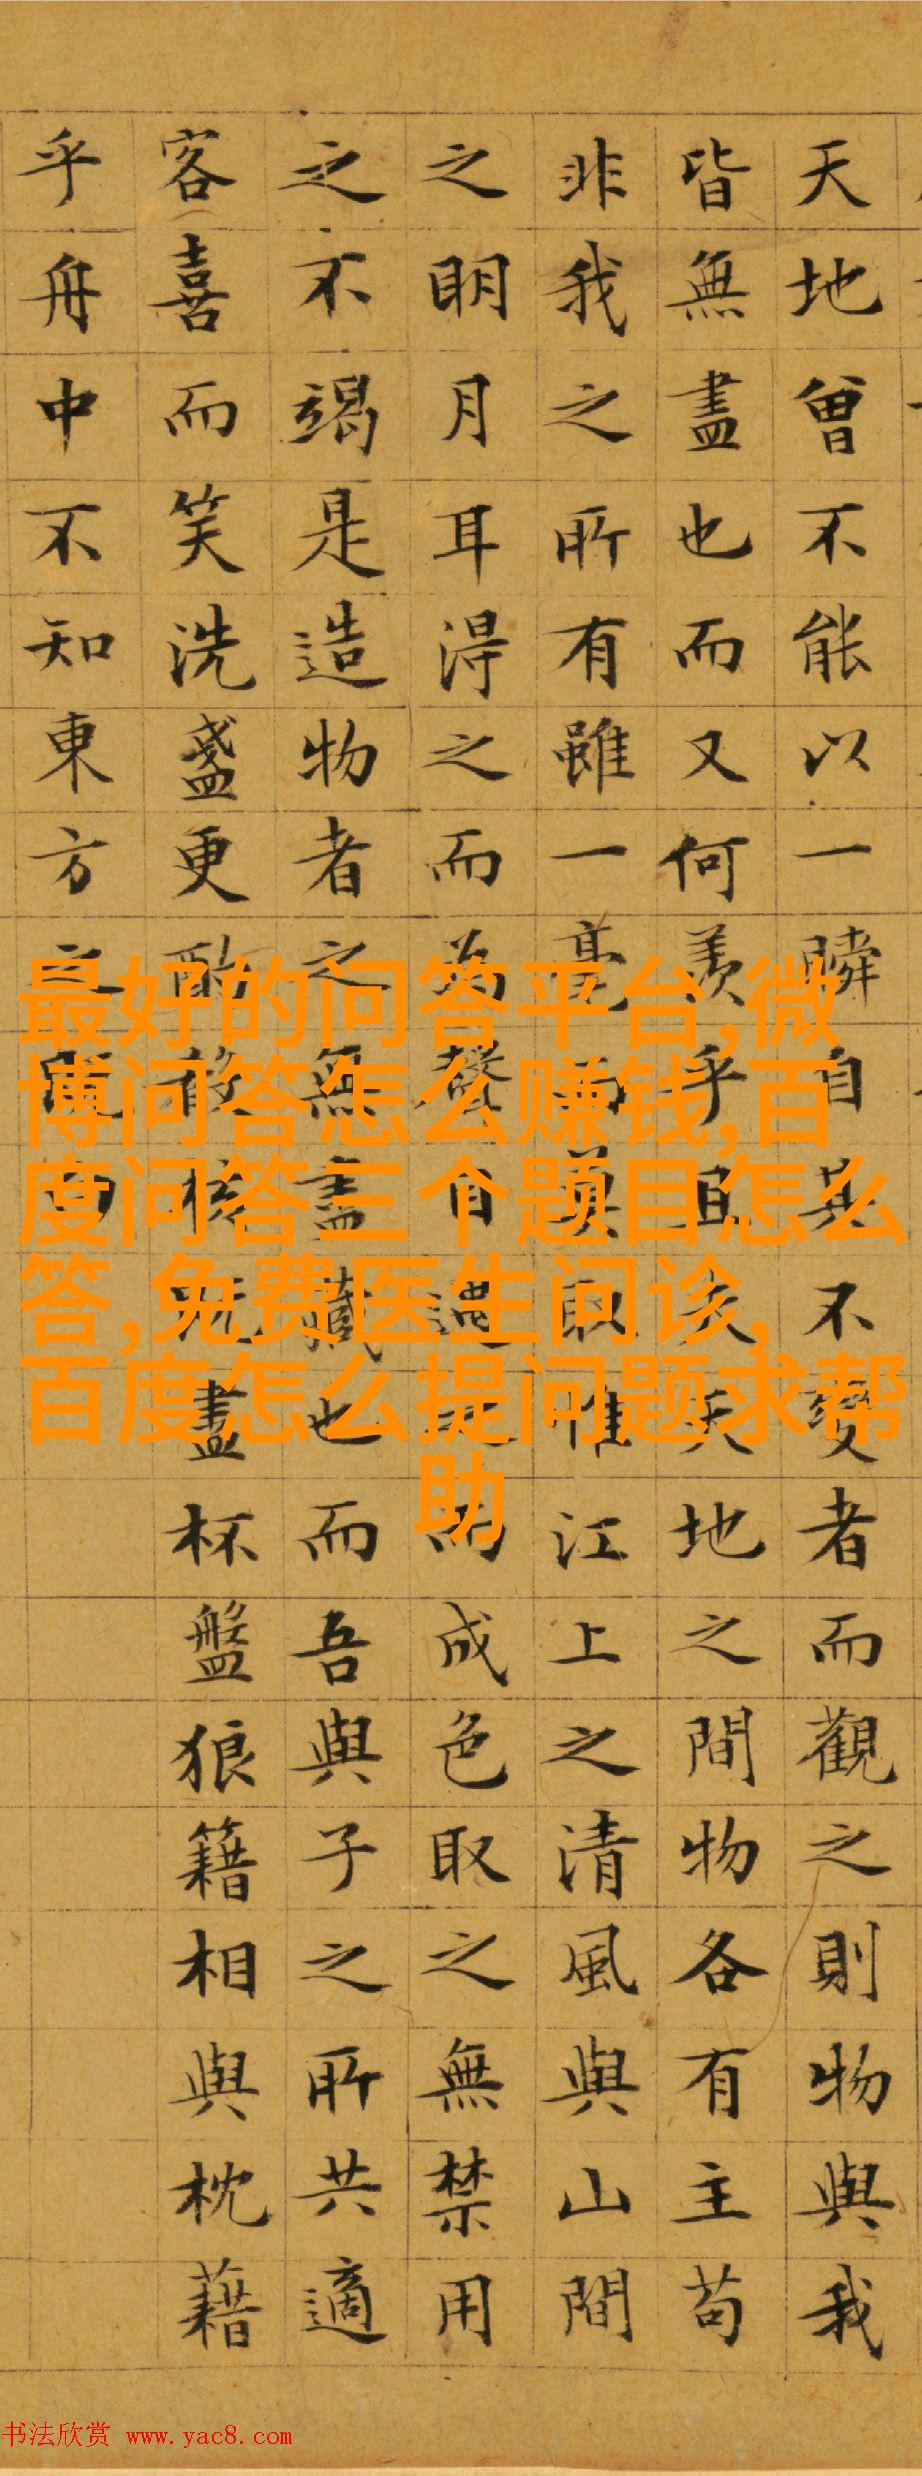 天地曾不能以一瞬自其不變者而觀之則物與我
皆無盡也而又何羨乎且夫天地之間物各有主苟
非我之所有雖一毫而莫取惟江上之清風與山間
之明月耳得之而為聲目遇之而成色取之無禁用
之不竭是造物者之無盡藏也而吾與子之所共適
客喜而笑洗盞更酌核既盡杯盤狼籍相與枕藉
乎舟中不知東方之既白
最好的问答平台,微
博问答怎么赚钱,百
度问答三个题目怎么
答,免费医生问诊,
百度怎么提问题求帮
助
书法欣赏 www.yac8.com